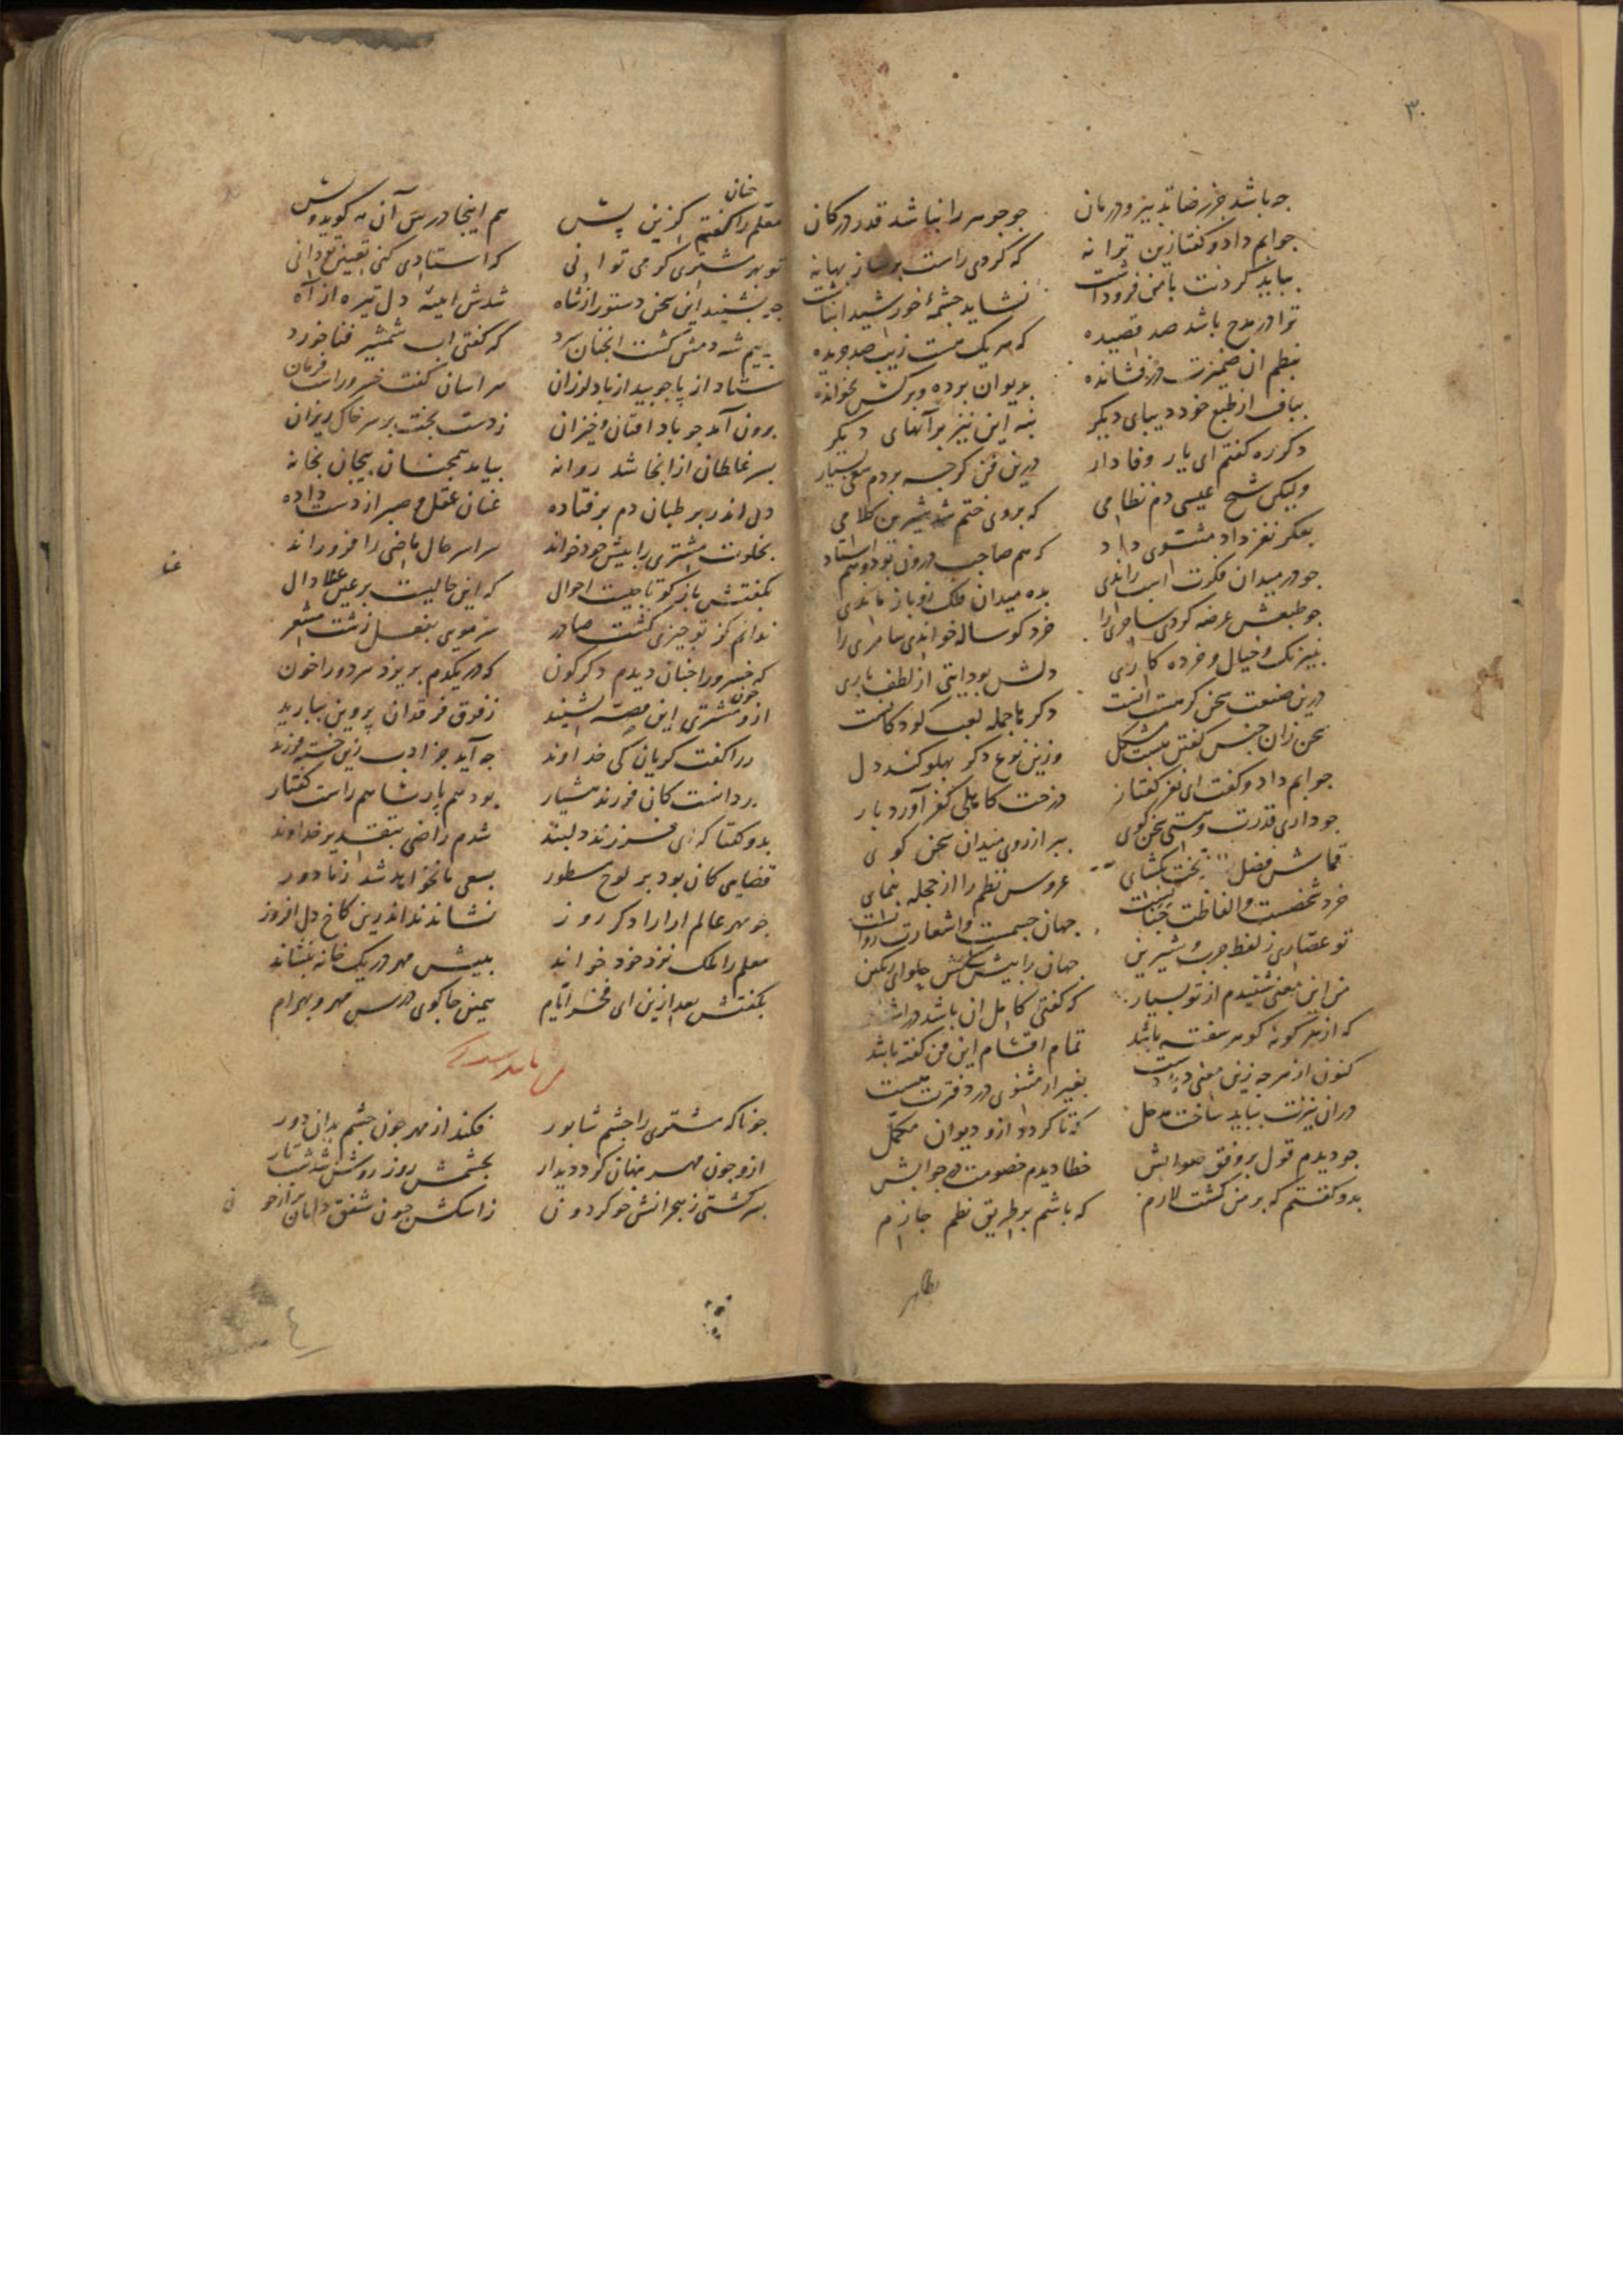 ۳۰
چه باشد جز رضا تدبیر و درمان
جو جوهر را نباشد قدر در کان
جوابم داد و کفتا زین ترانه
که کردی راست بر ساز بهانه
بباید کردنت با من فروداشت
نشاید چشمهٔ خورشید انباشت
ترا در مدح باشد صد قصیده
که هر یک هست زیب صد جریده
بنظم آن ضمیرت در فشانده
بدیوان برده و بر کس نخوانده
بباف از طبع خود دیبای دیکر
بنه این نیز بر آنهای دیکر
دکر ره کفتم ای یار وفادار
درین فن کرچه بردم سعی بسیار
ولیکن شیخ عیسی دم نظامی
که بر وی ختم شد شیرین کلامی
بفکر نغز داد مثنوی داد
که هم صاحب درون بود و هم استاد
جو در میدان فکرت اسب راندی
بده میدان فلک زو باز ماندی
جو طبعش عرضه کردی ساحری را
خرد کوساله خواندی سامری را
بنیرنک و خیال و خرده کاری
دلش بود ایتی از لطف باری
درین صنعت سخن کر هست آنست
دکرها جمله لعب کودکانست
سخن زان جنس کفتن هست مشکل
وزین نوع دکر پهلو کند دل
جوابم داد و کفت ای نغز کفتار
درخت کاهلی کفر آورد بار
جو داری قدرت و هستی سخن کوی
ببر از روی میدان سخن کوی
قماش فضل بکشای
عروس نظم را از حجله بنمای
خرد شخصست و الفاظت جنانست
جهان جسمست و اشعارت روانست
تو عصاری ز لفظ چرب و شیرین
جهان را پیش کش حلوای رنکین
من این معنی شنیدم از تو بسیار
که کفتی کامل آن باشد در اشعار
که از هر کونه کوهر سفته باشد
تمام اقسام این فن کفته باشد
کنون از هرچه زین معنی
بغیر از مثنوی در دفترت نیست
در ان نیزت بباید ساخت مدخل
که تا کردد ازو دیوان مکمل
جو دیدم قول بر وفق صوابش
خطا دیدم خصومت در جوابش
بدو کفتم که بر من کشت لازم
که باشم بر طریق نظم جازم
معلم را جنان کفتم کزین پیش
هم اینجا درس آن مه کوید و
تو بهر مشتری کر می توانی
که استادی کنی تعیین تو دانی
چو بشنید این سخن دستور از شاه
شدش ایینهٔ دل تیره از آه
ز بیم شه دمش کشت انجنان سرد
که کفتی اب شمشیر فنا خورد
ستاد از پا جو بید از باد لرزان
هراسان کفت خسرو راست فرمان
برون آمد جو باد افتان و خیزان
ز دست بخت بر سر خاک ریزان
بسر غلطان از انجا شد روانه
بیامد همجنان بیجان بخانه
دل اندر بر طبان دم بر فتاده
عنان عقل و صبر از دست داده
بخلوت مشتری را پیش خود خواند
سراسر حال ماضی را فرو راند
بکفتش باز کو تا چیست احوال
که این حالیست بر عین عنا دال
ندانم کز تو چیزی کشت صادر
که خسرو را جنان دیدم دکرکون
که در یکدم بریزد هر دو را خون
جون ازو مشتری این قصه بشنید
ز فوق فرقدان پروین ببارید
بدر را کفت کریان کی خداوند
چه آید جز ادب زین خسته فرزند
پدر دانست کان فرزند هشیار
بود هم پارسا هم راست کفتار
بدو کفتا که ای فرزند دلبند
شدم راضی بتقدیر خداوند
قضایی کان بود بر لوح مسطور
بسعی ما نخواهد شد ز ما دور
جو مهر عالم ارا را دکر روز
نشاندند اندرین کاخ دل افروز
معلم را ملک نزد خود خواند
ببیش مهر در یک خانه بنشاند
بکفتش بعد ازین ای فخر ایام
همین جا کوی درس مهر و بهرام
جو ناکه مشتری را چشم شابور
فکند از مهر جون چشم بدان دور
ازو جون مهر پنهان کرد دیدار
بچشمش روز روشن شد شب تار
زاشکش جون شفق دامان